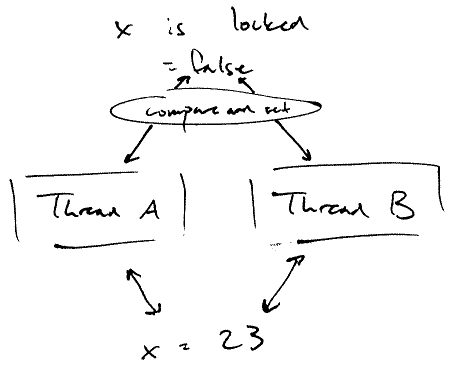 x is locked
= false
compare and set
Thread A
Thread B
x = 23